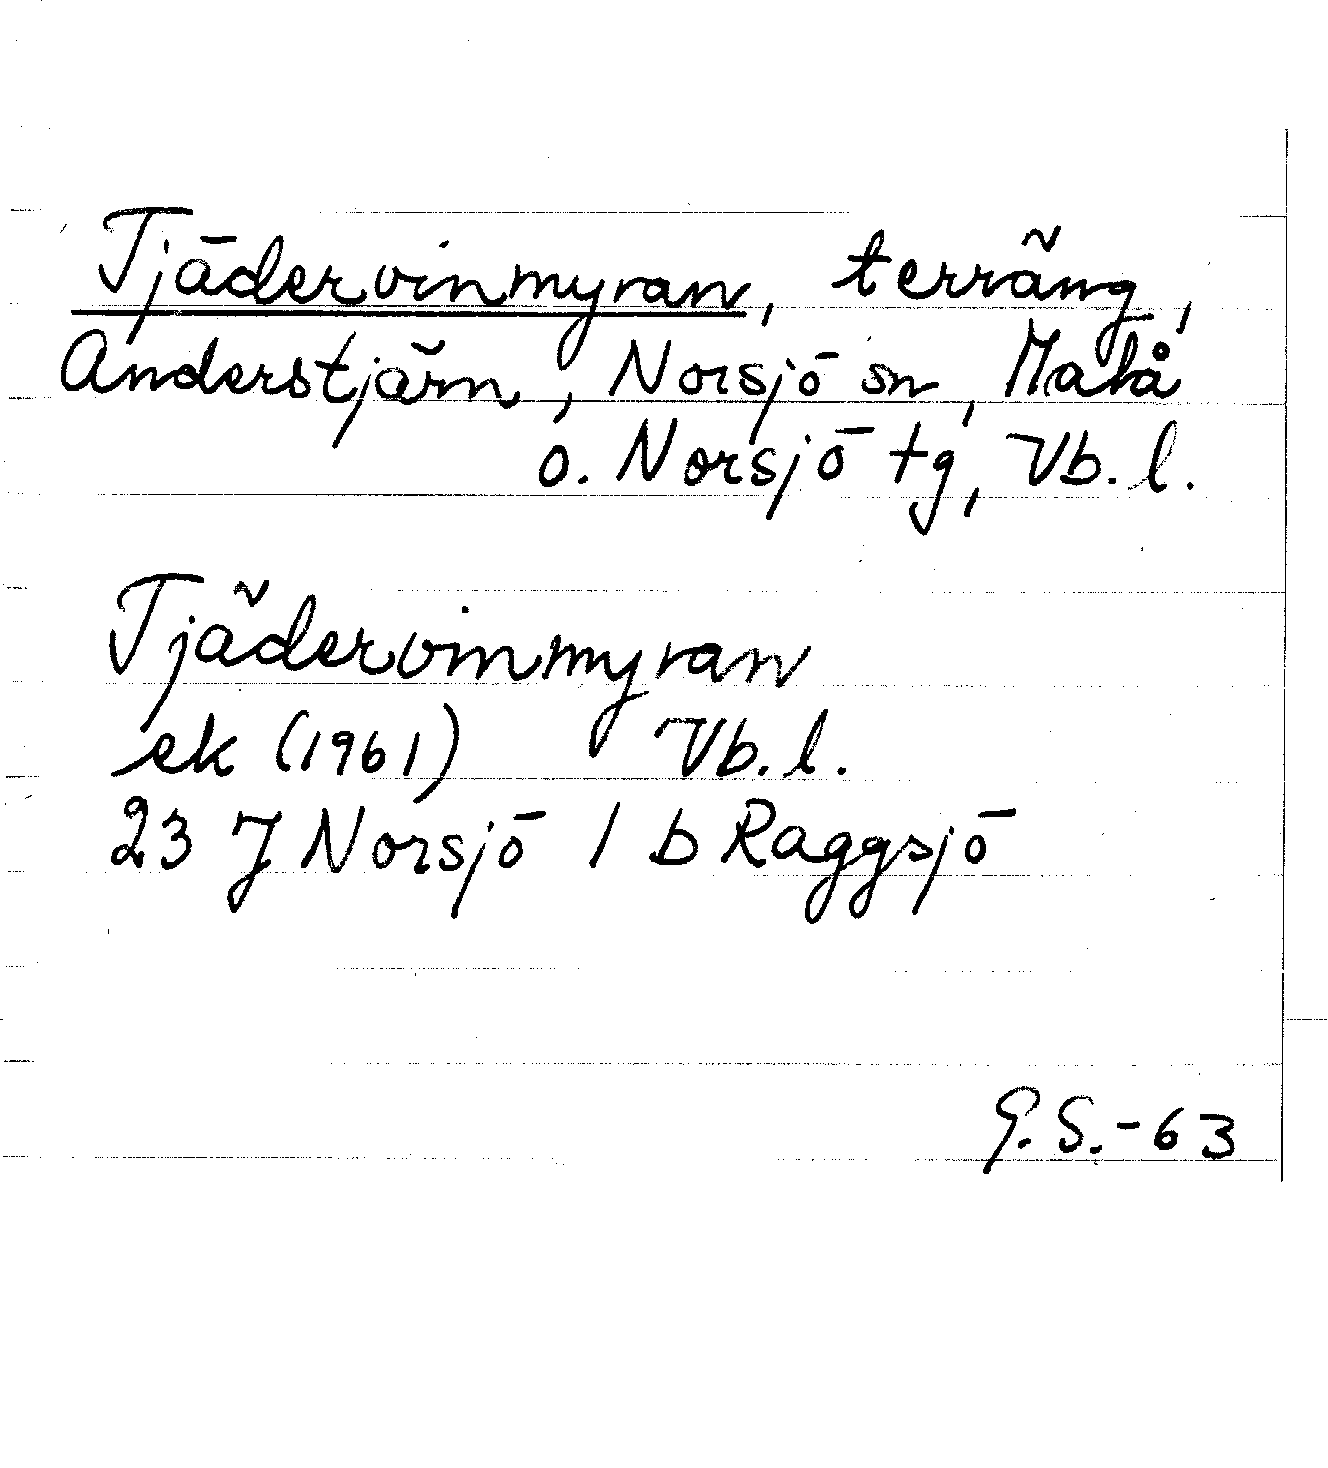 Tjädervinmyran, terräng,
Anderstjärn, Norsjö sn, Malå
o. Norsjö tg, Vb. l.
Tjädervinmyran
ek (1961) Vb. l.
23 J Norsjö 1 b Raggsjö
G. S. - 63